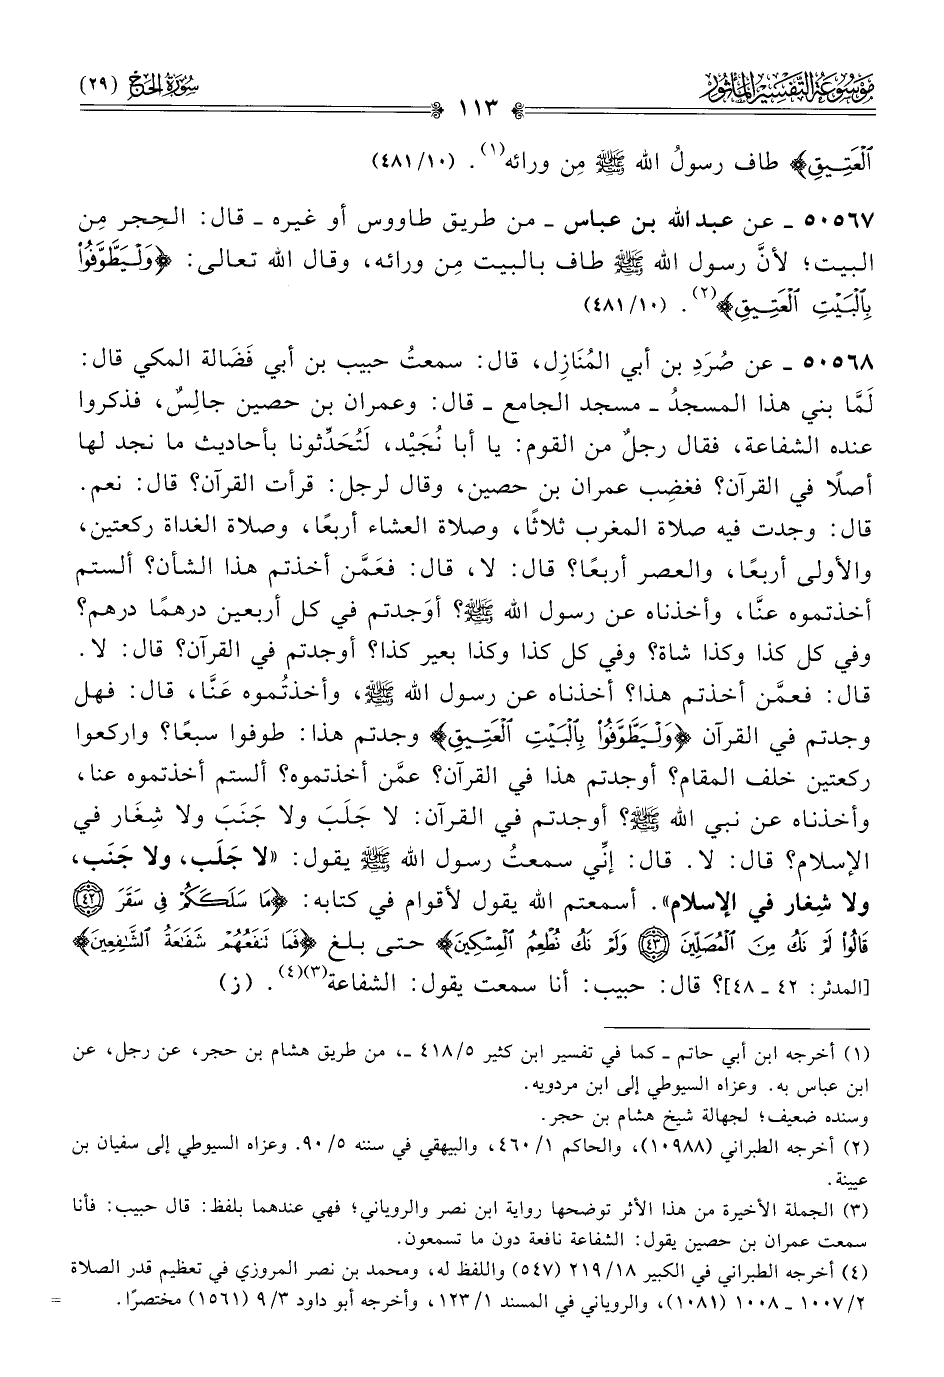 مَوْسُوعَةُ التَّفْسِيرِ المَأْثُور
١١٣
سُورَةُ الحَجّ (٢٩)
ٱلْعَتِيقِ﴾ طاف رسولُ الله ﷺ مِن ورائه(١). (٤٨١/١٠)
٥٠٥٦٧ ـ عن عبد الله بن عباس ـ من طريق طاووس أو غيره ـ قال: الحِجر مِن
البيت؛ لأنَّ رسول الله ﷺ طاف بالبيت مِن ورائه، وقال الله تعالى: ﴿وَلْيَطَّوَّفُوا۟
بِٱلْبَيْتِ ٱلْعَتِيقِ﴾(٢). (٤٨١/١٠)
٥٠٥٦٨ ـ عن صُرَدِ بن أبي المُنَازِل، قال: سمعتُ حبيب بن أبي فَضَالة المكي قال:
لَمَّا بني هذا المسجدُ ـ مسجد الجامع ـ قال: وعمران بن حصين جالِسٌ، فذكروا
عنده الشفاعة، فقال رجلٌ من القوم: يا أبا نُجَيْد، لَتُحَدِّثونا بأحاديث ما نجد لها
أصلًا في القرآن؟ فغضِب عمران بن حصين، وقال لرجل: قرأت القرآن؟ قال: نعم.
قال: وجدت فيه صلاة المغرب ثلاثًا، وصلاة العشاء أربعًا، وصلاة الغداة ركعتين،
والأولى أربعًا، والعصر أربعًا؟ قال: لا، قال: فعَمَّن أخذتم هذا الشأن؟ ألستم
أخذتموه عنَّا، وأخذناه عن رسول الله ﷺ؟ أوَجدتم في كل أربعين درهمًا درهم؟
وفي كل كذا وكذا شاة؟ وفي كل كذا وكذا بعير كذا؟ أوجدتم في القرآن؟ قال: لا.
قال: فعمَّن أخذتم هذا؟ أخذناه عن رسول الله ﷺ، وأخذتُموه عَنَّا، قال: فهل
وجدتم في القرآن ﴿وَلْيَطَّوَّفُوا۟ بِٱلْبَيْتِ ٱلْعَتِيقِ﴾ وجدتم هذا: طوفوا سبعًا؟ واركعوا
ركعتين خلف المقام؟ أوجدتم هذا في القرآن؟ عمَّن أخذتموه؟ ألستم أخذتموه عنا،
وأخذناه عن نبي الله ﷺ؟ أوجدتم في القرآن: لا جَلَبَ ولا جَنَبَ ولا شِغَار في
الإسلام؟ قال: لا. قال: إنِّي سمعتُ رسول الله ﷺ يقول: «لا جَلَب، ولا جَنَب،
ولا شِغار في الإسلام». أسمعتم الله يقول لأقوام في كتابه: ﴿مَا سَلَكَكُمْ فِى سَقَرَ ﴿٤٢﴾
قَالُوا۟ لَمْ نَكُ مِنَ ٱلْمُصَلِّينَ ﴿٤٣﴾ وَلَمْ نَكُ نُطْعِمُ ٱلْمِسْكِينَ﴾ حتى بلغ ﴿فَمَا تَنفَعُهُمْ شَفَٰعَةُ ٱلشَّٰفِعِينَ﴾
[المدثر: ٤٢ ـ ٤٨]؟ قال: حبيب: أنا سمعت يقول: الشفاعة(٣)(٤). (ز)
(١) أخرجه ابن أبي حاتم ـ كما في تفسير ابن كثير ٤١٨/٥ ـ، من طريق هشام بن حجر، عن رجل، عن
ابن عباس به. وعزاه السيوطي إلى ابن مردويه.
وسنده ضعيف؛ لجهالة شيخ هشام بن حجر.
(٢) أخرجه الطبراني (١٠٩٨٨)، والحاكم ٤٦٠/١، والبيهقي في سننه ٩٠/٥. وعزاه السيوطي إلى سفيان بن
عيينة.
(٣) الجملة الأخيرة من هذا الأثر توضحها رواية ابن نصر والروياني؛ فهي عندهما بلفظ: قال حبيب: فأنا
سمعت عمران بن حصين يقول: الشفاعة نافعة دون ما تسمعون.
(٤) أخرجه الطبراني في الكبير ٢١٩/١٨ (٥٤٧) واللفظ له، ومحمد بن نصر المروزي في تعظيم قدر الصلاة
١٠٠٧/٢ ـ ١٠٠٨ (١٠٨١)، والروياني في المسند ١٢٣/١، وأخرجه أبو داود ٩/٣ (١٥٦١) مختصرًا. =